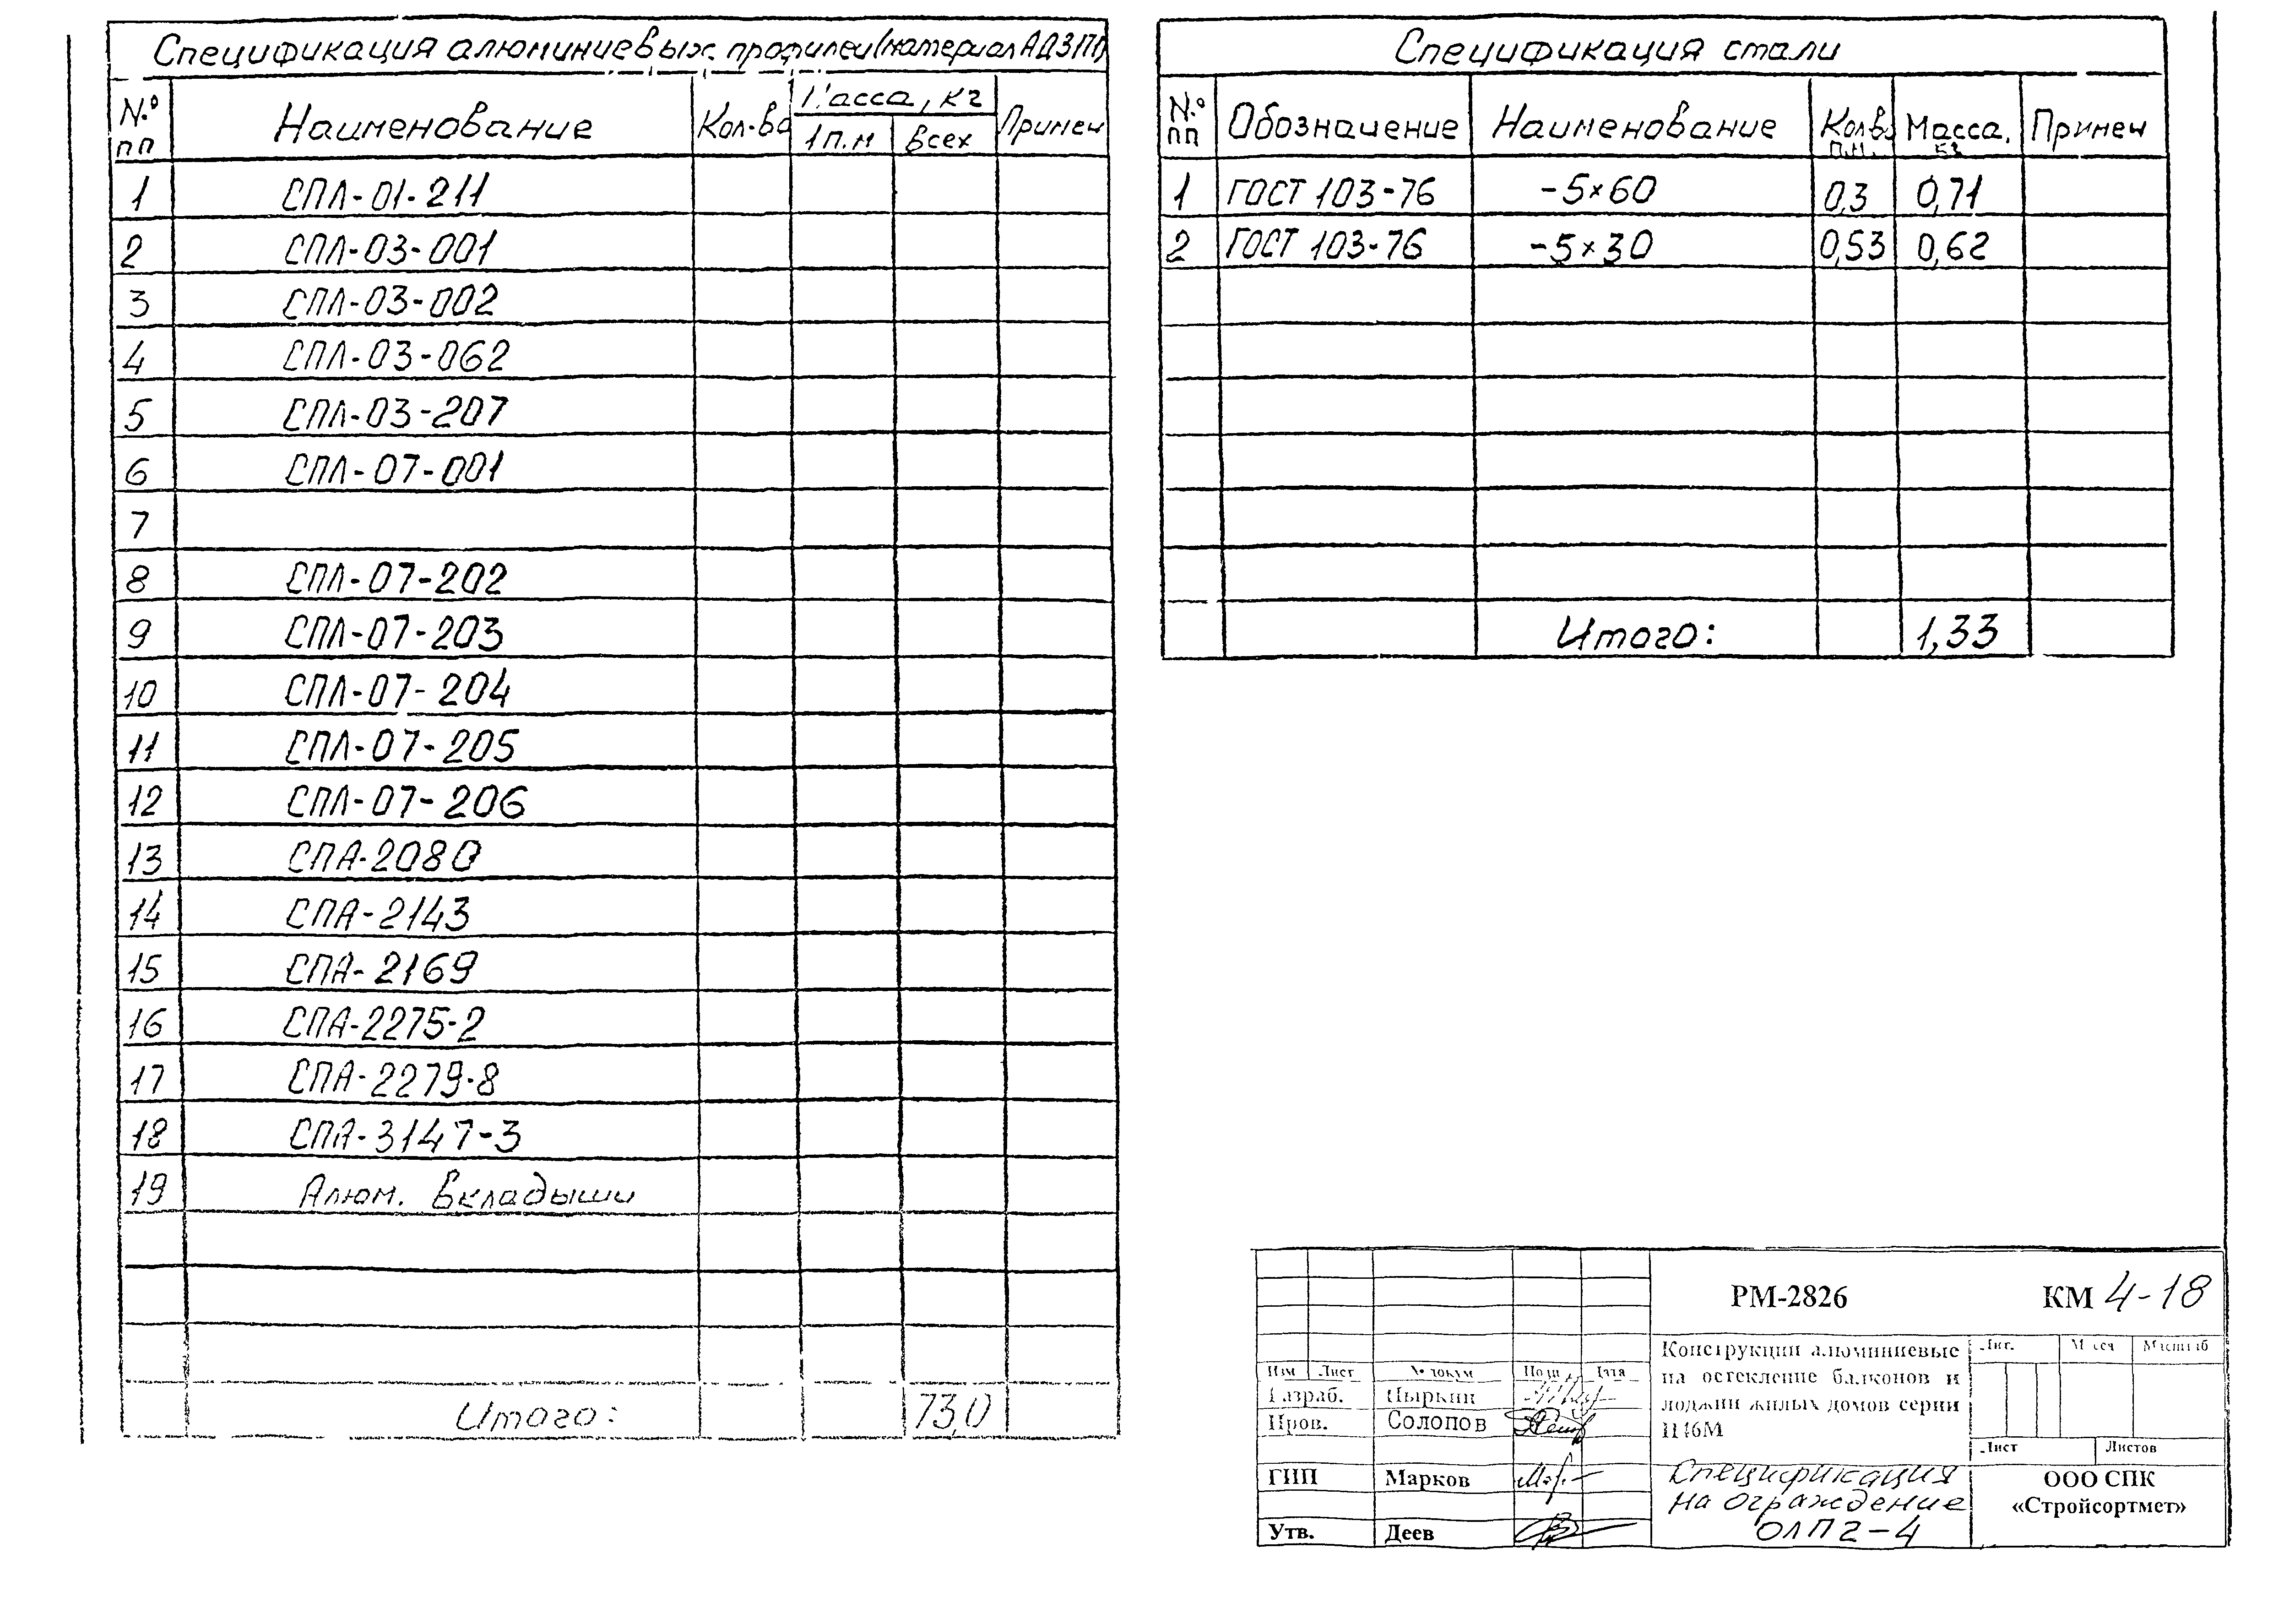 Спецификация алюминиевых профилей (материал АД31Т1)
№ пп Наименование Кол-во Масса, кг Примеч
1 п.м всех
1 СПЛ-01-211
2 СПЛ-03-001
3 СПЛ-03-002
4 СПЛ-03-062
5 СПЛ-03-207
6 СПЛ-07-001
7
8 СПЛ-07-202
9 СПЛ-07-203
10 СПЛ-07-204
11 СПЛ-07-205
12 СПЛ-07-206
13 СПА-2080
14 СПА-2143
15 СПА-2169
16 СПА-2275-2
17 СПА-2279-8
18 СПА-3147-3
19 Алюм. вкладыши
Итого: 73,0
Спецификация стали
№ пп Обозначение Наименование Кол-во п.м. Масса, кг Примеч
1 ГОСТ 103-76 -5×60 0,3 0,71
2 ГОСТ 103-76 -5×30 0,53 0,62
Итого: 1,33
РМ-2826 КМ 4-18
Изм Лист № докум Подп Дата
Разраб. Цыркин
Пров. Солопов
ГИП Марков
Утв. Деев
Конструкции алюминиевые
на остекление балконов и
лоджий жилых домов серии
П46М
Лит. Масса Масштаб
Лист Листов
Спецификация
на ограждение
ОЛП2-4
ООО СПК
«Стройсортмет»